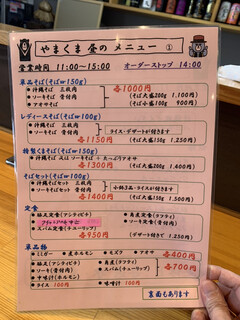 やまくま 昼のメニュー ①
営業時間 11:00～15:00 オーダーストップ 14:00
単品そば(そばw150g)
沖縄そば 三枚肉
ソーキそば 骨付肉
アオサそば
各1000円
(そば大盛200g 1,100円)
(そば小盛100g 900円)
レディースそば(そばw100g)
沖縄そば 三枚肉
ソーキそば 骨付肉
各1150円
ライス・デザートが付きます
(そば大盛150g 1,250円)
特製くまそば(そばw150g)
沖縄そば 又は ソーキそば + たっぷりアオサ
各1300円
(そば大盛200g 1,400円)
そばセット(そばw100g)
沖縄そばセット 三枚肉
ソーキそばセット 骨付肉
各1350円
小鉢3品・ライスが付きます
(そば大盛150g 1,450円)
定食
豚足定食(アシティビチ)
角煮定食(ラフティ)
ソーキ定食(骨付肉)
スパム定食(チューリップ)
各950円
(デザート付きで 1,250円)
単品物
ミミガー 島ホルモン モズク アオサ 各400円
豚足(アシティビチ) 角煮(ラフティ)
ソーキ(骨付肉) スパム(チューリップ)
中味汁(ホルモン)
各700円
ライス 100円 味噌汁 100円
裏面もあります